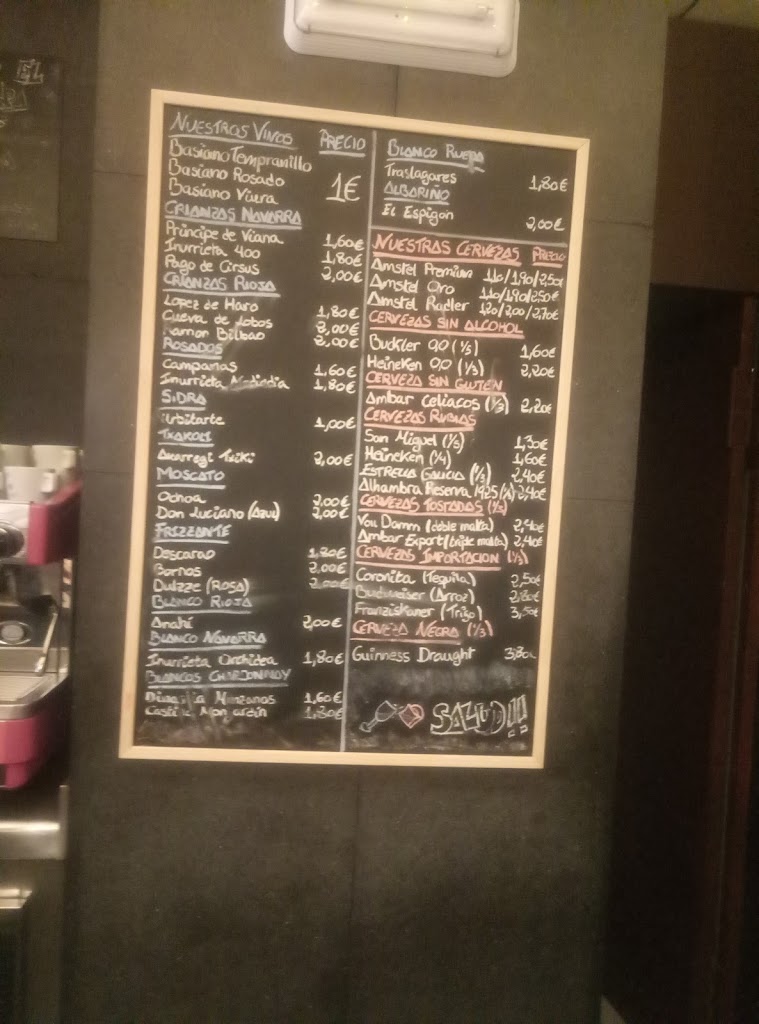 NUESTROS VINOS PRECIO
Basiano Tempranillo
Basiano Rosado 1€
Basiano Viura
CRIANZAS NAVARRA
Principe de Viana 1,60€
Inurrieta 400 1,80€
Pago de Cirsus 2,00€
CRIANZAS RIOJA
Lopez de Haro 1,80€
Cueva de Lobos 2,00€
Ramon Bilbao 2,00€
ROSADOS
Campanas 1,60€
Inurrieta Mediodia 1,80€
SIDRA
Urbitarte 1,00€
TXAKOLI
Amarregi Txiki 2,00€
MOSCATO
Ochoa 2,00€
Don Luciano (Azul) 2,00€
FRIZZANTE
Descarao 1,80€
Bornos 2,00€
Dulzze (ROSA) 2,00€
BLANCO RIOJA
Anahi 2,00€
BLANCO NAVARRA
Inurrieta Orchidea 1,80€
BLANCOS CHARDONNAY
Manzanos 1,60€
Castillo Monjardin 1,80€
BLANCO RUEDA
Traslagares 1,80€
ALBARIÑO
El Espigon 2,00€
NUESTRAS CERVEZAS PRECIO
Amstel Premium 1,10/1,90/2,50€
Amstel Oro 1,10/1,90/2,50€
Amstel Radler 1,20/2,00/2,70€
CERVEZAS SIN ALCOHOL
Buckler 0,0 (1/3) 1,60€
Heineken 0,0 (1/3) 2,20€
CERVEZA SIN GLUTEN
Ambar Celiacos (1/3) 2,20€
CERVEZAS RUBIAS
San Miguel (1/5) 1,30€
Heineken (1/4) 1,60€
ESTRELLA GALICIA (1/3) 2,40€
Alhambra Reserva 1925 (1/3) 2,40€
CERVEZAS TOSTADAS (1/3)
Voll Damm (doble malta) 2,40€
Ambar Export (triple malta) 2,40€
CERVEZAS IMPORTACION (1/3)
Coronita (Tequila) 2,50€
Budweiser (Arroz) 2,80€
Franziskaner (Trigo) 3,50€
CERVEZA NEGRA (1/3)
Guinness Draught 3,80€
SALUD!!!